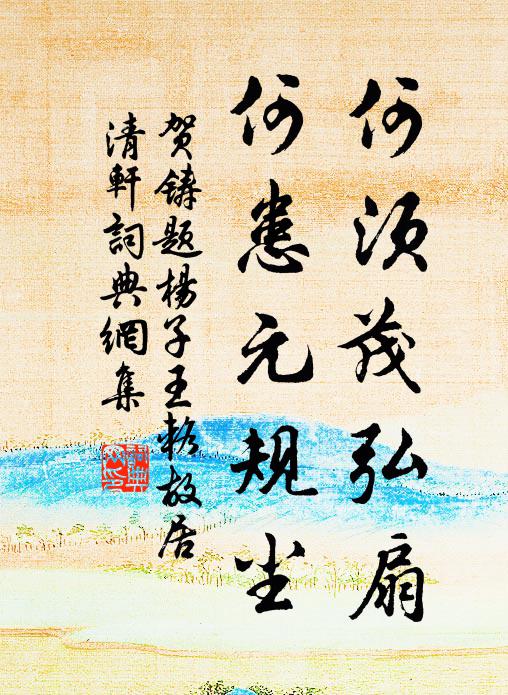 何须茂弘扇
何患元规尘
贺铸题杨子王敉故居
清軒詞典網集